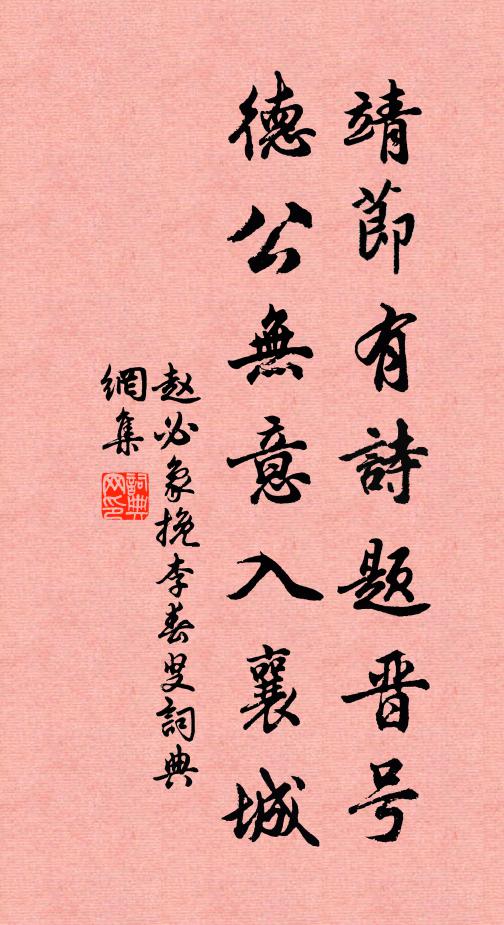 靖節有詩题晋号
德公無意入襄城
赵必象挽李春叟詞典
網集
詞典
网印